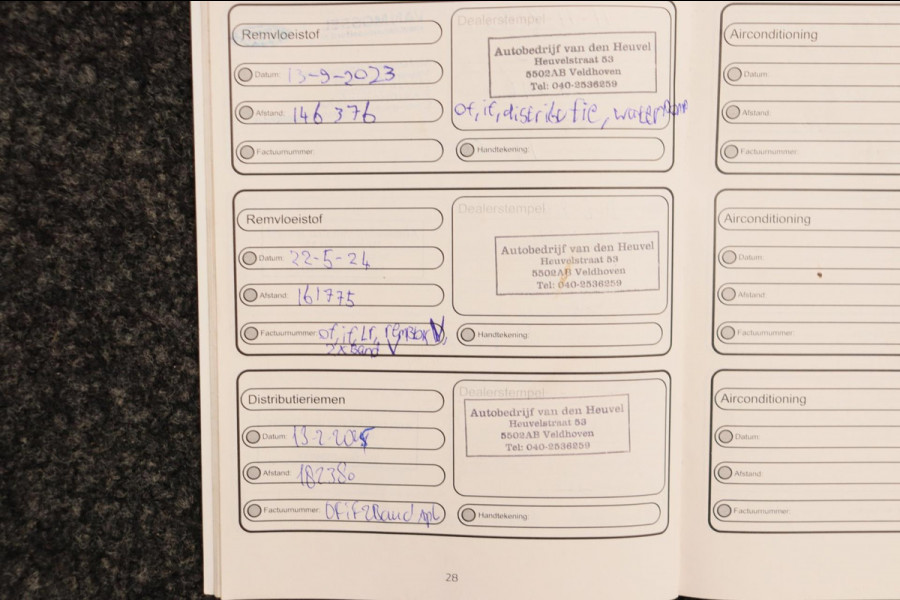 Remvloeistof
Dealerstempel
Autobedrijf van den Heuvel
Heuvelstraat 53
5502AB Veldhoven
Tel: 040-2536259
Datum: 13-9-2023
Afstand: 146 376
of, if, distributie, waterpomp
Factuurnummer:
Handtekening:
Airconditioning
Datum:
Afstand:
Factuurnummer:
Remvloeistof
Dealerstempel
Autobedrijf van den Heuvel
Heuvelstraat 53
5502AB Veldhoven
Tel: 040-2536259
Datum: 22-5-24
Afstand: 161775
Factuurnummer: of, if, Lf,
2x Band V
Handtekening:
Airconditioning
Datum:
Afstand:
Factuurnummer:
Distributieriemen
Dealerstempel
Autobedrijf van den Heuvel
Heuvelstraat 53
5502AB Veldhoven
Tel: 040-2536259
Datum: 13-2-2025
Afstand: 182380
Factuurnummer: of if 2Band
Handtekening:
Airconditioning
Datum:
Afstand:
Factuurnummer:
28